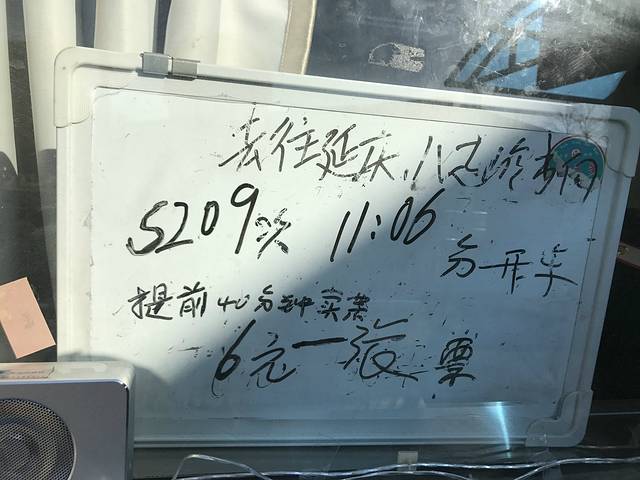 去往延庆、八达岭方向
S209次 11:06
分开车
提前40分钟卖票
6元一张票